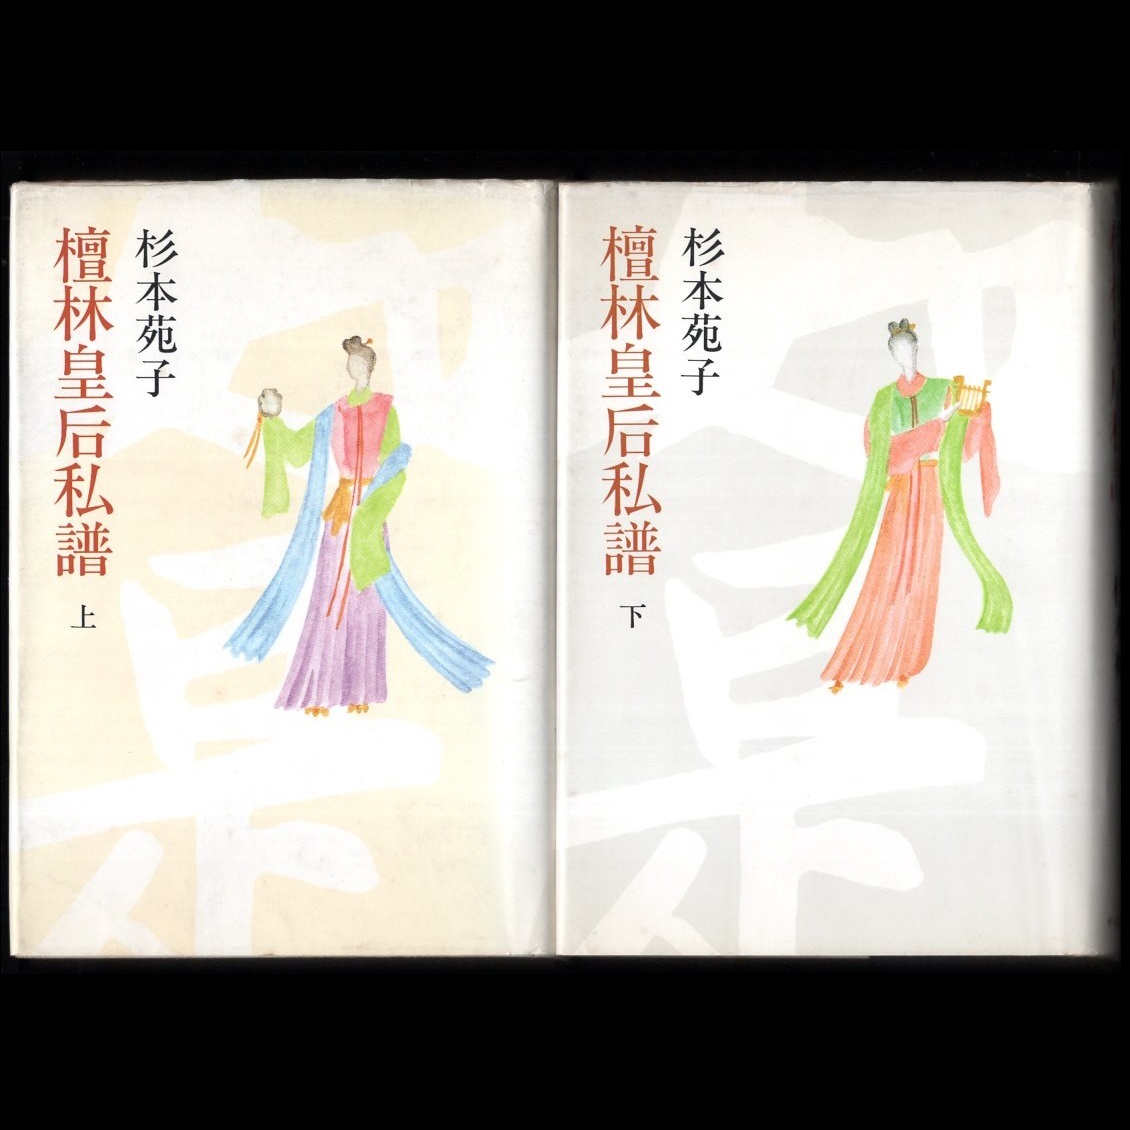 檀林皇后私譜
上
杉本苑子
檀林皇后私譜
下
杉本苑子